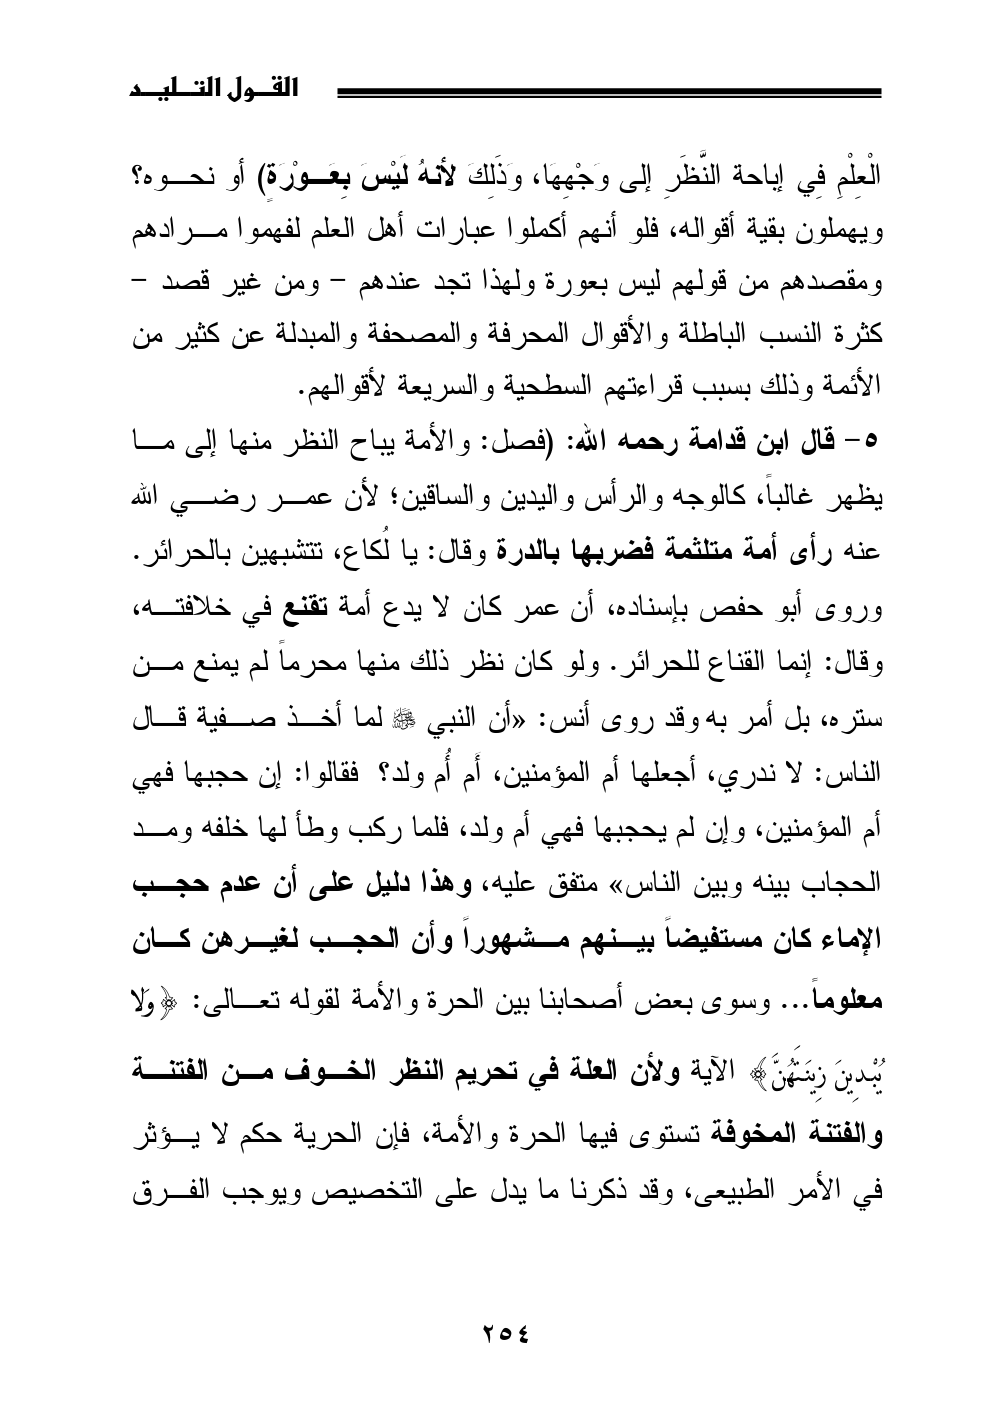 القول التليد
الْعِلْمِ فِي إباحة النَّظَرِ إلى وَجْهِهَا، وَذَلِكَ لأنهُ لَيْسَ بِعَوْرَةٍ) أو نحوه؟
ويهملون بقية أقواله، فلو أنهم أكملوا عبارات أهل العلم لفهموا مرادهم
ومقصدهم من قولهم ليس بعورة ولهذا تجد عندهم – ومن غير قصد –
كثرة النسب الباطلة والأقوال المحرفة والمصحفة والمبدلة عن كثير من
الأئمة وذلك بسبب قراءتهم السطحية والسريعة لأقوالهم.
٥- قال ابن قدامة رحمه الله: (فصل: والأمة يباح النظر منها إلى ما
يظهر غالباً، كالوجه والرأس واليدين والساقين؛ لأن عمر رضي الله
عنه رأى أمة متلثمة فضربها بالدرة وقال: يا لُكاع، تتشبهين بالحرائر.
وروى أبو حفص بإسناده، أن عمر كان لا يدع أمة تقنع في خلافته،
وقال: إنما القناع للحرائر. ولو كان نظر ذلك منها محرماً لم يمنع من
ستره، بل أمر به وقد روى أنس: «أن النبي ﷺ لما أخذ صفية قال
الناس: لا ندري، أجعلها أم المؤمنين، أَم أُم ولد؟ فقالوا: إن حجبها فهي
أم المؤمنين، وإن لم يحجبها فهي أم ولد، فلما ركب وطأ لها خلفه ومد
الحجاب بينه وبين الناس» متفق عليه، وهذا دليل على أن عدم حجب
الإماء كان مستفيضاً بينهم مشهوراً وأن الحجب لغيرهن كان
معلوماً... وسوى بعض أصحابنا بين الحرة والأمة لقوله تعالى: ﴿وَلَا
يُبْدِينَ زِينَتَهُنَّ﴾ الآية ولأن العلة في تحريم النظر الخوف من الفتنة
والفتنة المخوفة تستوى فيها الحرة والأمة، فإن الحرية حكم لا يؤثر
في الأمر الطبيعى، وقد ذكرنا ما يدل على التخصيص ويوجب الفرق
٢٥٤